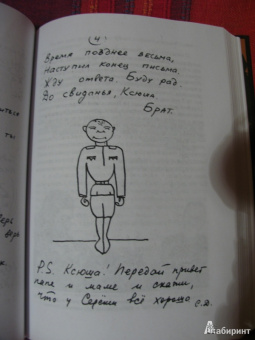 4
Время позднее весьма,
Наступил конец письма,
Жду ответа Буду рад
До свиданья, Ксюш.
Брат.
P.S. Ксюша! Передай привет
папе и маме и скажи,
что у Серёжи всё хорошо
Лабиринт